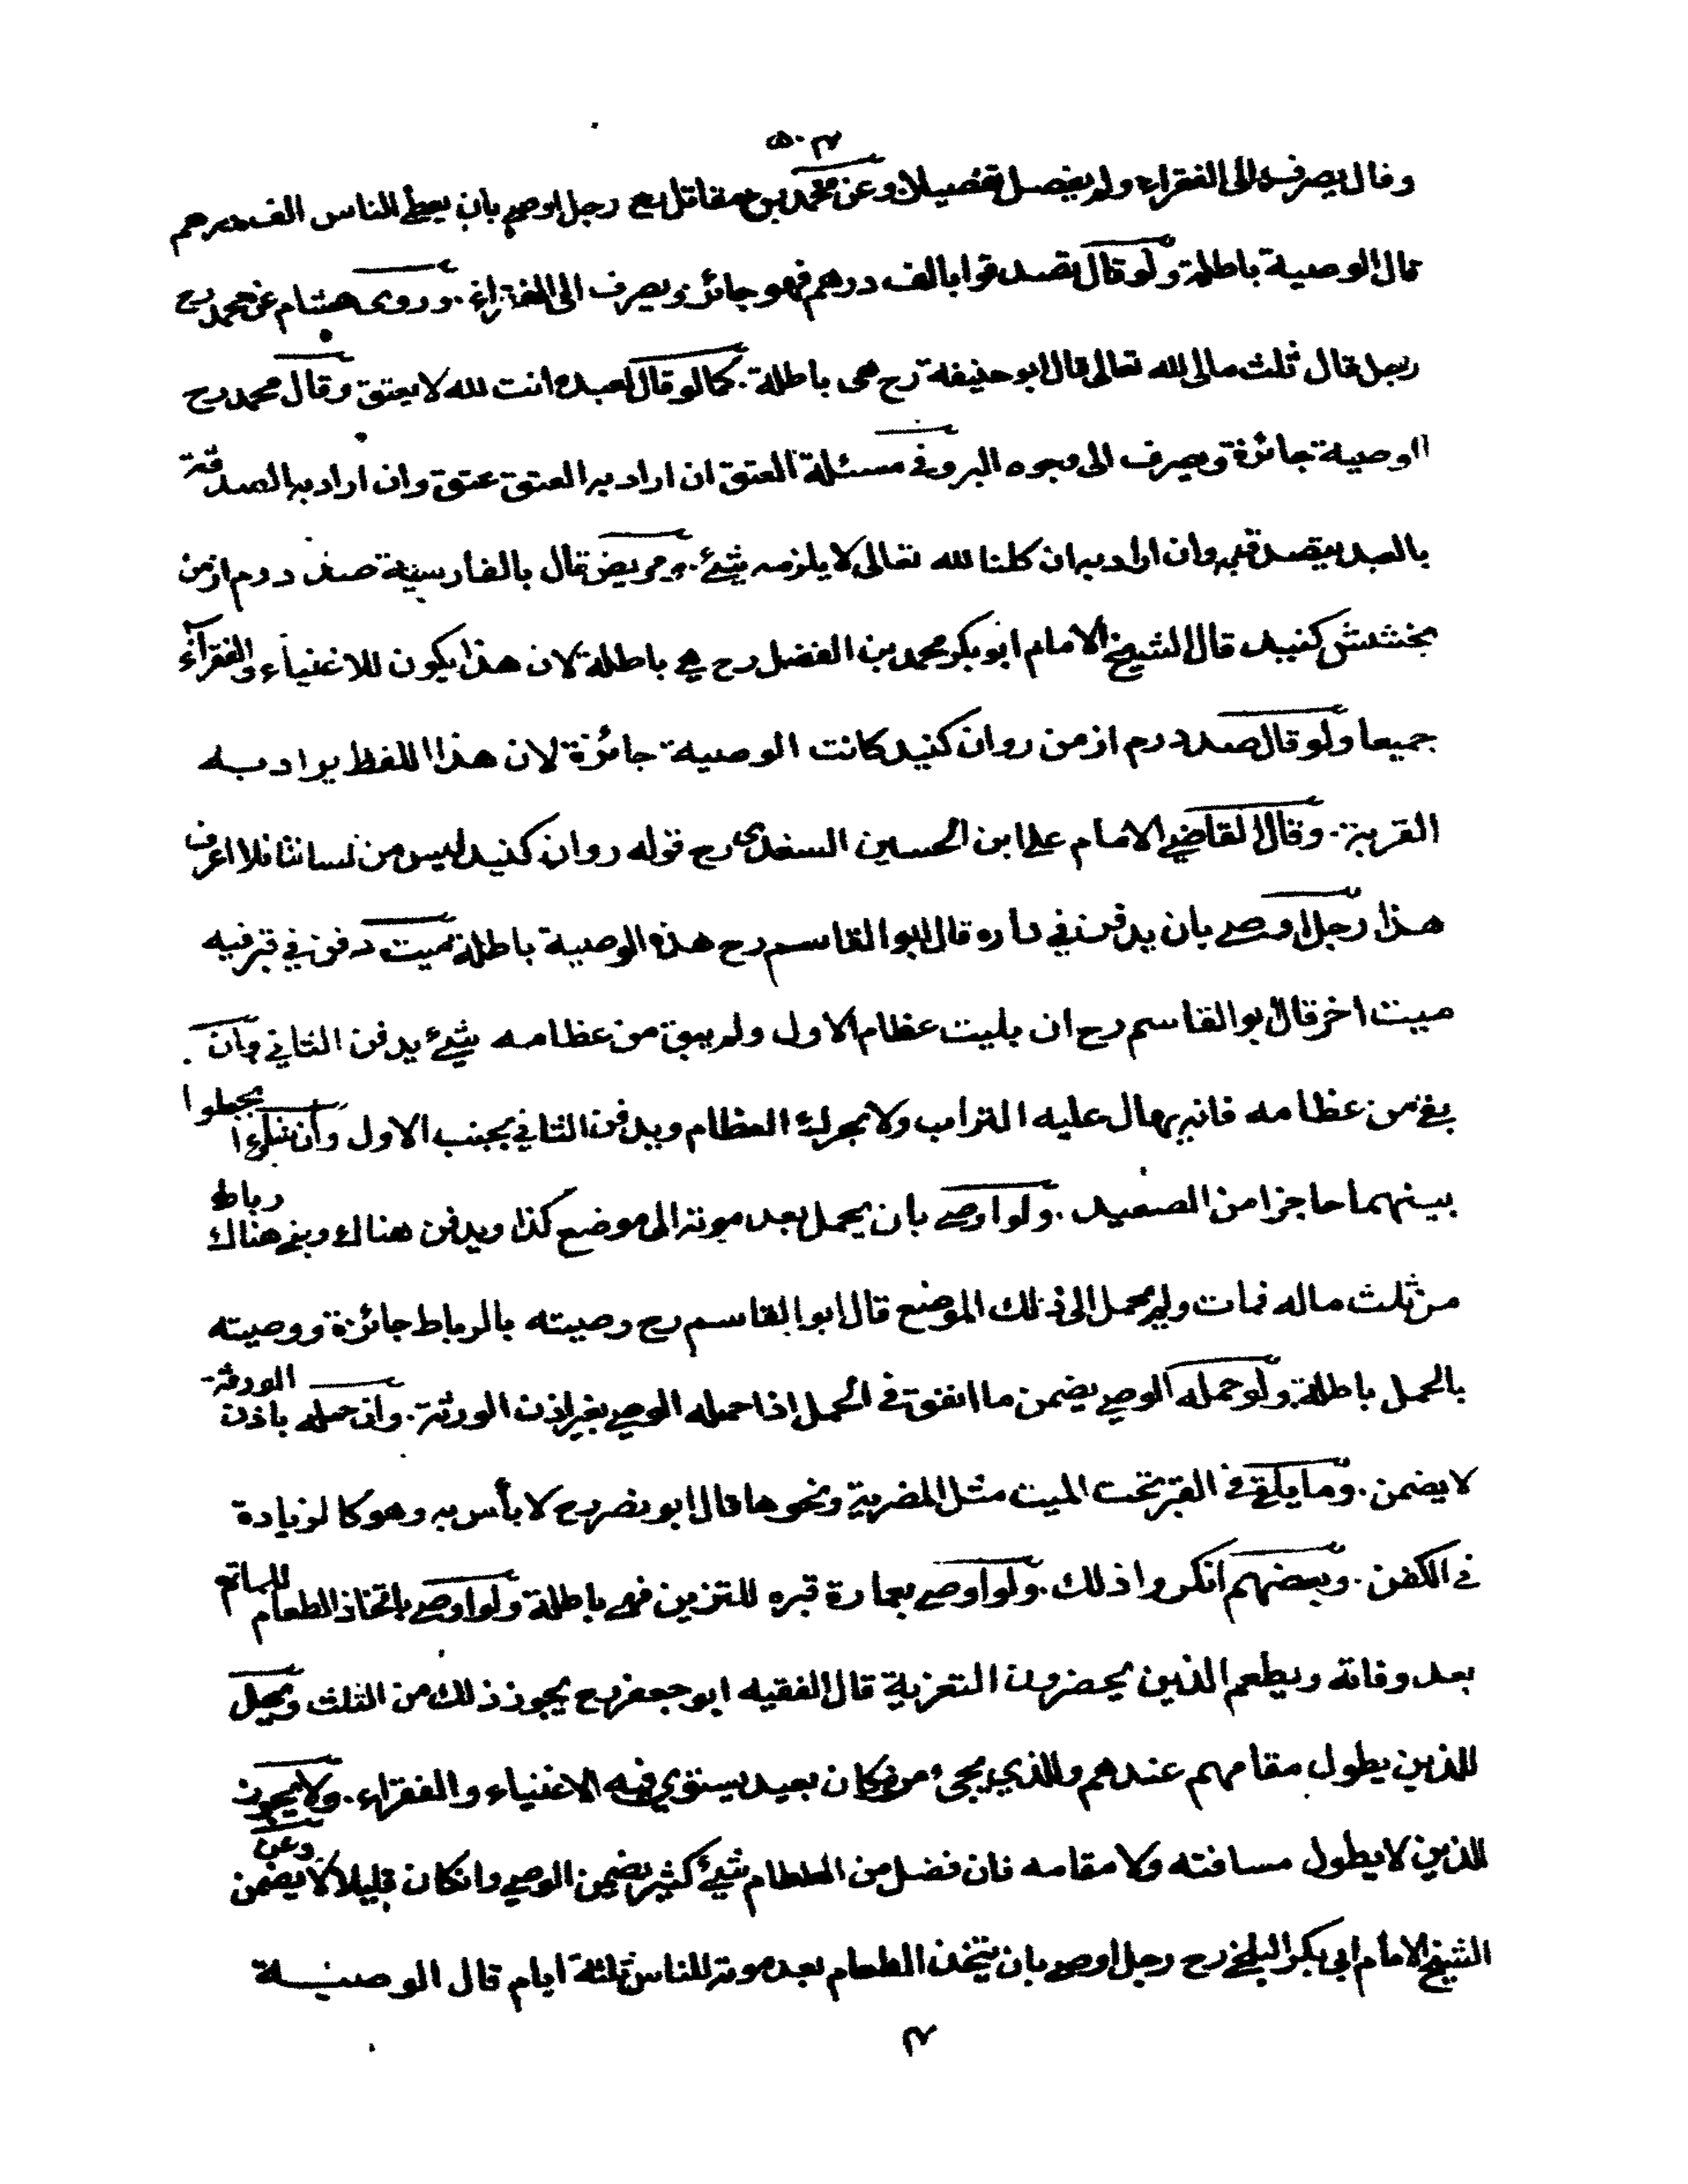 ٥٠٣
وقال يصرف الى الفقراء ولم يفصل تفصيلا وعن محمد بن مقاتل رح رجل اوصى بان يعطى للناس الف درهم
قال الوصية باطلة ولو قال تصدقوا بالف درهم فهو جائز ويصرف الى الفقراء . وروى هشام عن محمد رح
رجل قال ثلث مالى لله تعالى قال ابو حنيفة رح هى باطلة . كما لو قال لعبده انت لله لا يعتق وقال محمد رح
الوصية جائزة ويصرف الى وجوه البر وفى مسئلة العتق ان اراد به العتق عتق وان اراد به الصدقة
بالعبد يتصدق به وان اراد به ان كلنا لله تعالى لا يلزمه شئ . ومريض قال بالفارسية صد درم از من
بخشش كنيد قال الشيخ الامام ابو بكر محمد بن الفضل رح هى باطلة لان هذا يكون للاغنياء والفقراء
جميعا ولو قال صد درم از من روان كنيد كانت الوصية جائزة لان هذا اللفظ يراد به
القربة . وقال القاضى الامام على ابن الحسين السغدى رح قوله روان كنيد ليس من لساننا فلا اعرف
هذا رجل اوصى بان يدفن في داره قال ابو القاسم رح هذه الوصية باطلة ميت دفن في قبر فيه
ميت اخر قال ابو القاسم رح ان بليت عظام الاول ولم يبق من عظامه شئ يدفن الثاني وان
بقى من عظامه فانه يهال عليه التراب ولا يحرك العظام ويدفن الثاني بجنب الاول وان شاءوا يجعلوا
بينهما حاجزا من الصعيد . ولو اوصى بان يحمل بعد موته الى موضع كذا ويدفن هناك ويبنى هناك رباط
من ثلث ماله فمات ولم يحمل الى ذلك الموضع قال ابو القاسم رح وصيته بالرباط جائزة ووصيته
بالحمل باطلة ولو حمله الوصى يضمن ما انفق فى الحمل اذا حمله الوصى بغير اذن الورثة . وان حمله باذن الورثة
لا يضمن . وما يلقى فى القبر تحت الميت مثل المضربة ونحوها قال ابو نصر رح لا بأس به وهو كالزيادة
فى الكفن . وبعضهم انكروا ذلك . ولو اوصى بعمارة قبره للتزين فهى باطلة ولو اوصى باتخاذ الطعام للمأتم
بعد وفاته ويطعم الذين يحضرون التعزية قال الفقيه ابو جعفر رح يجوز ذلك من الثلث ويحل
للذين يطول مقامهم عندهم وللذي يجئ من مكان بعيد يستوي فيه الاغنياء والفقراء . ولا يجوز
للذين لا يطول مسافته ولا مقامه فان فضل من الطعام شئ كثير يضمن الوصى وان كان قليلا لا يضمن وعن
الشيخ الامام ابى بكر البلخى رح رجل اوصى بان يتخذ الطعام بعد موته للناس ثلثة ايام قال الوصية